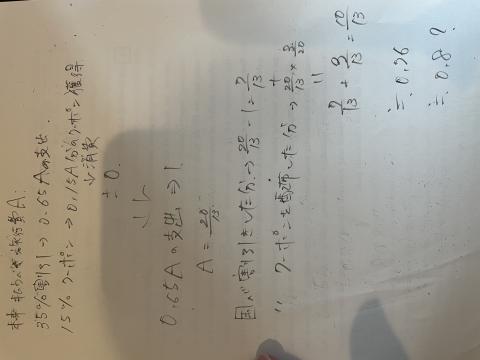 35%割引 → 0.65Aの支出.
15%クーポン → 0.15A分のクーポン獲得
↓消費
± 0.
0.65Aの支出 ⇒ 1
A = 20/13
国が割引きした分 → 20/13 - 1 = 7/13
+
〃 クーポンを配布した分 → 20/13 × 3/20
||
7/13 + 3/13 = 10/13
≒ 0.76
≒ 0.8?